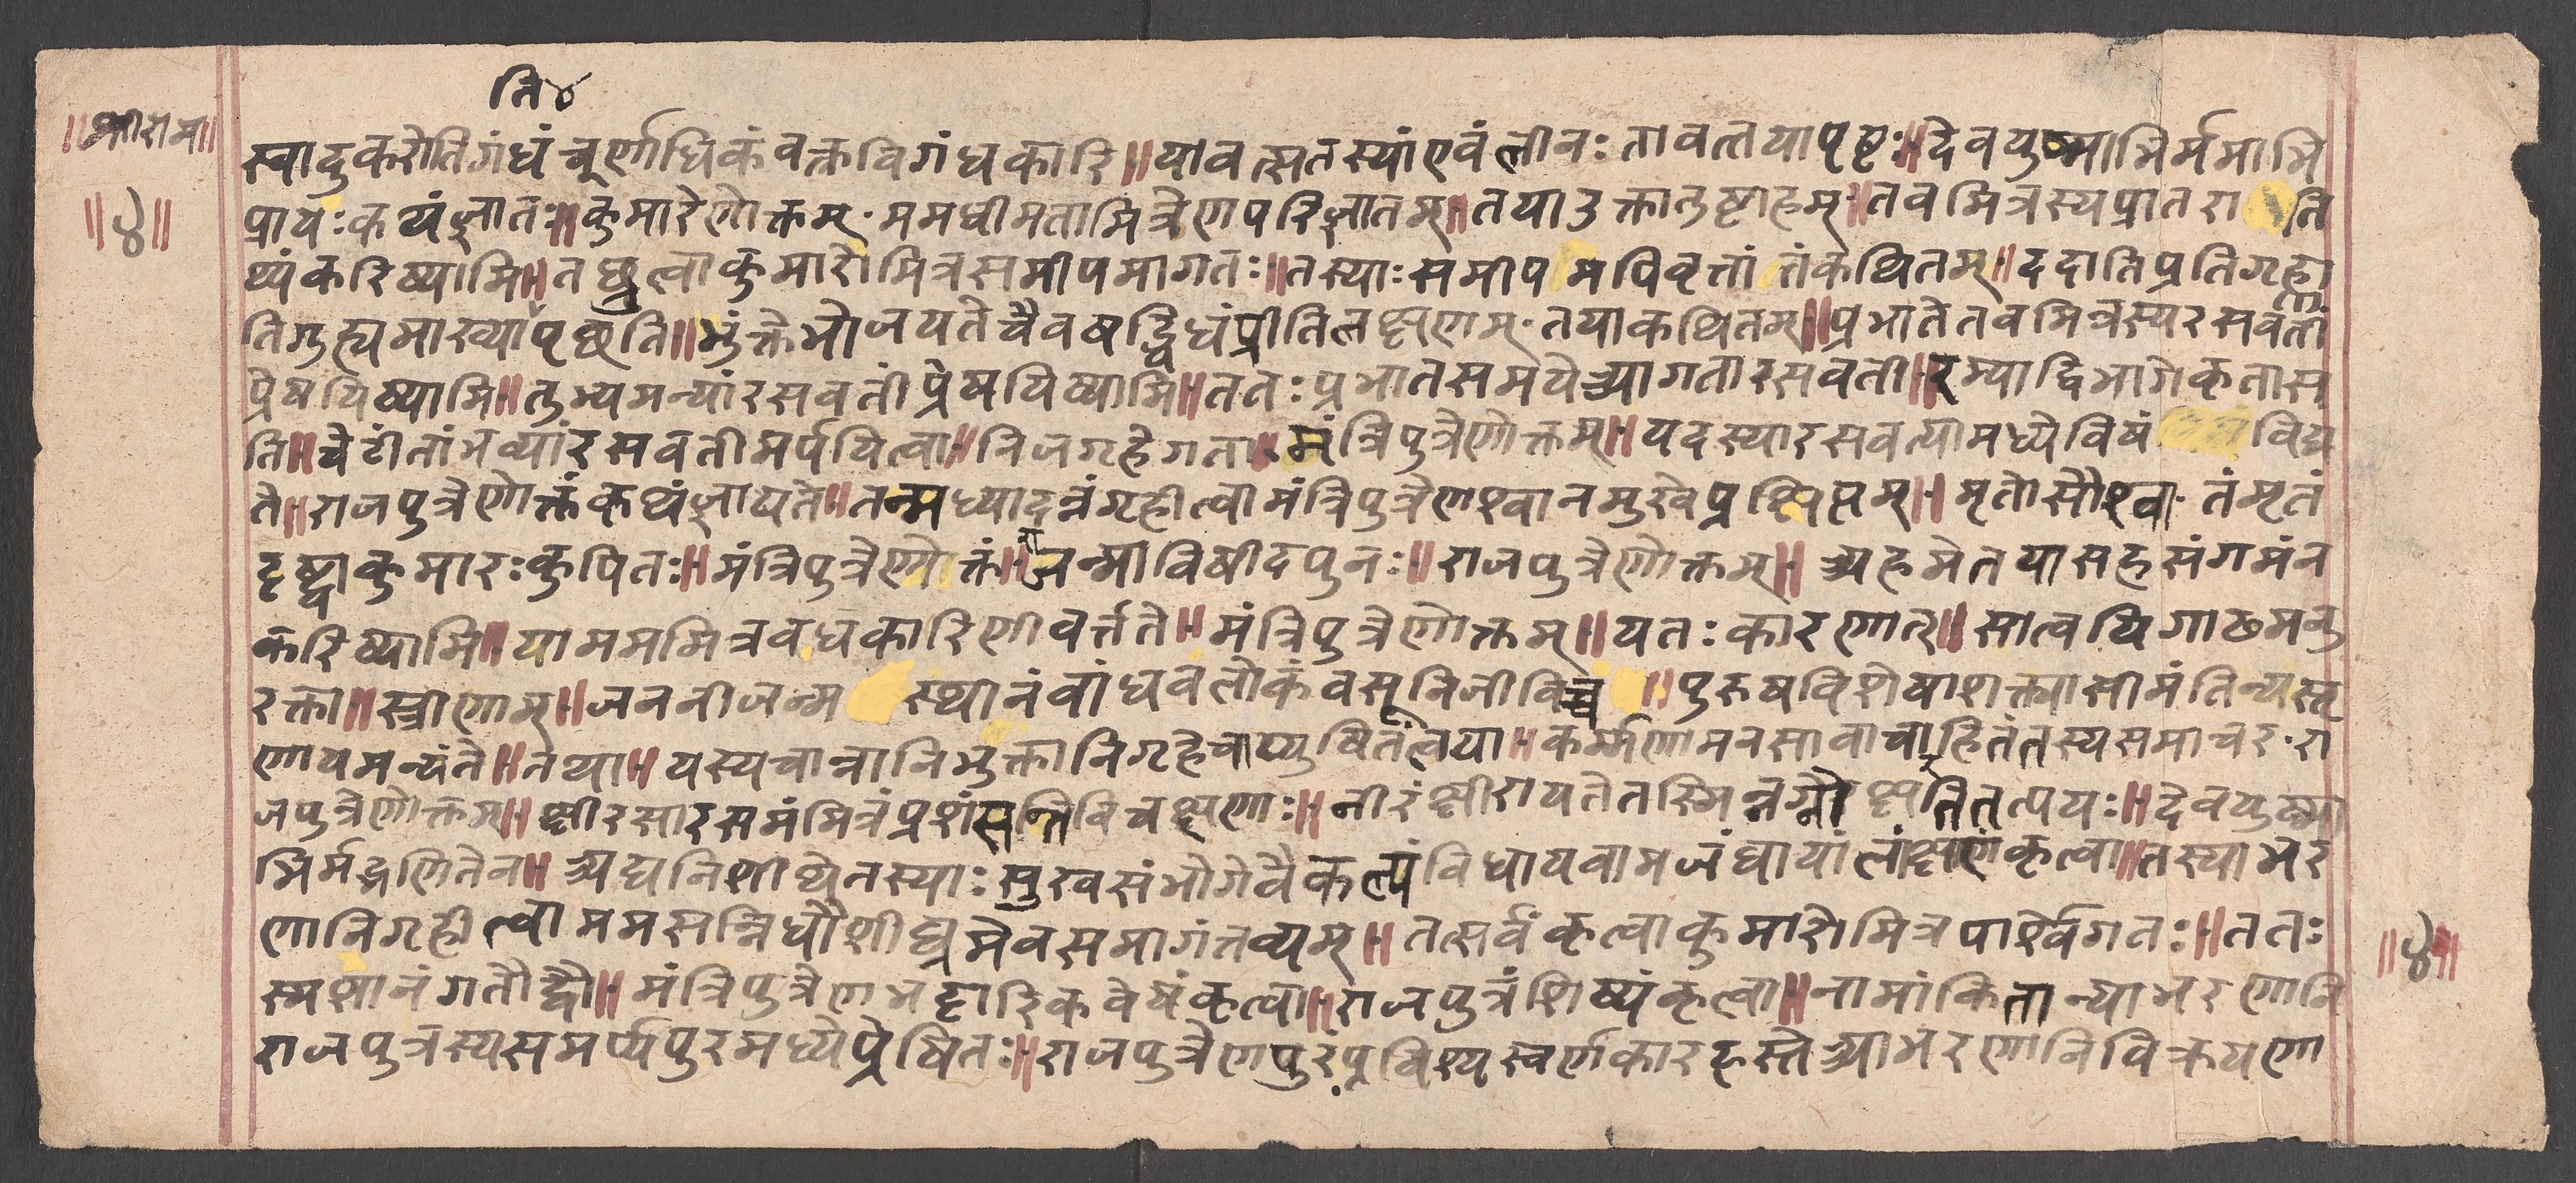 ति४
॥श्रीराम॥
॥४॥
स्वादुकरोतिगंधंचूर्णाधिकंवक्तविगंधकारि॥यावत्सतस्यांएवंलीनः तावत्तयापृष्टः॥देवयुष्माभिर्ममाभि
प्रायःकथंज्ञातः॥कुमारेणोक्तम्·ममधीमतामित्रेणपरिज्ञातम्॥तयाउक्तातुष्टाहम्॥तवमित्रस्यप्रातराति
थ्यंकरिष्यामि॥तछ्रुत्वाकुमारोमित्रसमीपमागतः॥तस्याःसमीपमपिवृत्तांतंकथितम्॥ददातिप्रतिगृह्णा
तिगुह्यमाख्यापृछति॥भुंक्तेभोजयतेचैवषड्विधंप्रीतिलक्षणम्·तयाकथितम्॥प्रभातेतवमित्रस्यरसवतीं
प्रेषयिष्यामि॥तुभ्यमन्यांरसवतींप्रेषयिष्यामि॥ततःप्रभातसमयेआगतारसवती॥रम्याद्विभागेकृतास
ति॥चेटींतांभव्यांरसवतीमर्पयित्वा॥निजगृहेगता॥मंत्रिपुत्रेणोक्तम्॥यदस्यारसवत्यामध्येविषं विद्य
ते॥राजपुत्रेणोक्तंकथंज्ञायते॥तन्मध्यादन्नंगृहीत्वामंत्रिपुत्रेणश्वानमुखेप्रक्षिप्तम्॥मृतोसौश्वा·तंमृतं
दृष्ट्वाकुमारःकुपितः॥मंत्रिपुत्रेणोक्तं॥राजन्माविषीदपुनः॥राजपुत्रेणोक्तम्॥अहमेतयासहसंगमंन
करिष्यामि॥याममममित्रवधकारिणीवर्त्तते॥मंत्रिपुत्रेणोक्तम्॥यतःकारणात्॥सात्वयिगाढमनु
रक्ता॥स्त्रीणाम्॥जननीजन्म स्थानंबांधवलोकंवसूनिजीवि ॥पुरुषविशेषाशक्त्यासीमंतिन्यस्तृ
णायमन्यंते॥तथा॥यस्यचान्नानिभुक्तानिगृहेचाप्युषितंत्वया॥कर्म्मणामनसावाचाहितंतस्यसमाचर·रा
जपुत्रेणोक्तम्॥क्षीरसारसमंमित्रंप्रशंसन्तिविचक्षणाः॥नीरंक्षीरायतेतस्मिन्नग्नौक्षरतितत्पयः॥देवयुष्मा
भिर्मद्भणितेन॥अद्यनिशीथेतस्याःसुखसंभोगेवैकल्पंविधायवामजंघायांलांक्षणंकृत्वा॥तस्याभर
णानिगृहीत्वाममसन्निधौशीघ्रमेवसमागंतव्यम्॥तत्सर्वंकृत्वाकुमारोमित्रपार्श्वेगतः॥ततः
स्मशानंगतौद्वौ॥मंत्रिपुत्रेणभट्टारिकवेषंकृत्वा॥राजपुत्रंशिष्यंकृत्वा॥नामांकितान्याभरणानि
राजपुत्रस्यसमर्प्यपुरमध्येप्रेषितः॥राजपुत्रेणपुरंप्रविश्यस्वर्णकारहस्तेआभरणानिविक्रयणा
॥४॥